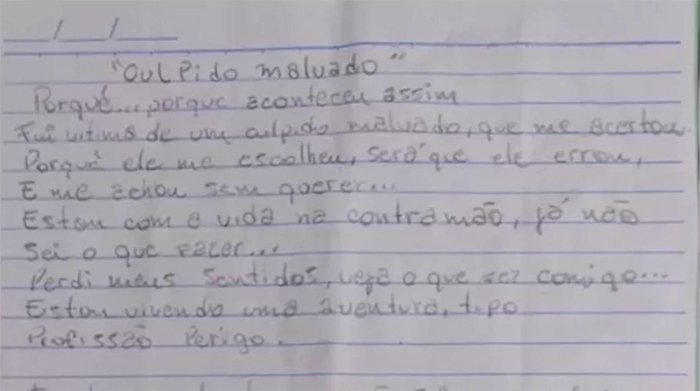 __/__/__
"Culpido malvado"
Porquê... porque aconteceu assim
Fui vitima de um culpido malvado, que me acertou
Porquê ele me escolheu, será que ele errou,
E me achou sem querer...
Estou com a vida na contramão, já não
Sei o que fazer...
Perdi meus sentidos, veja o que fez comigo...
Estou vivendo uma aventura, tipo
Profissão Perigo.